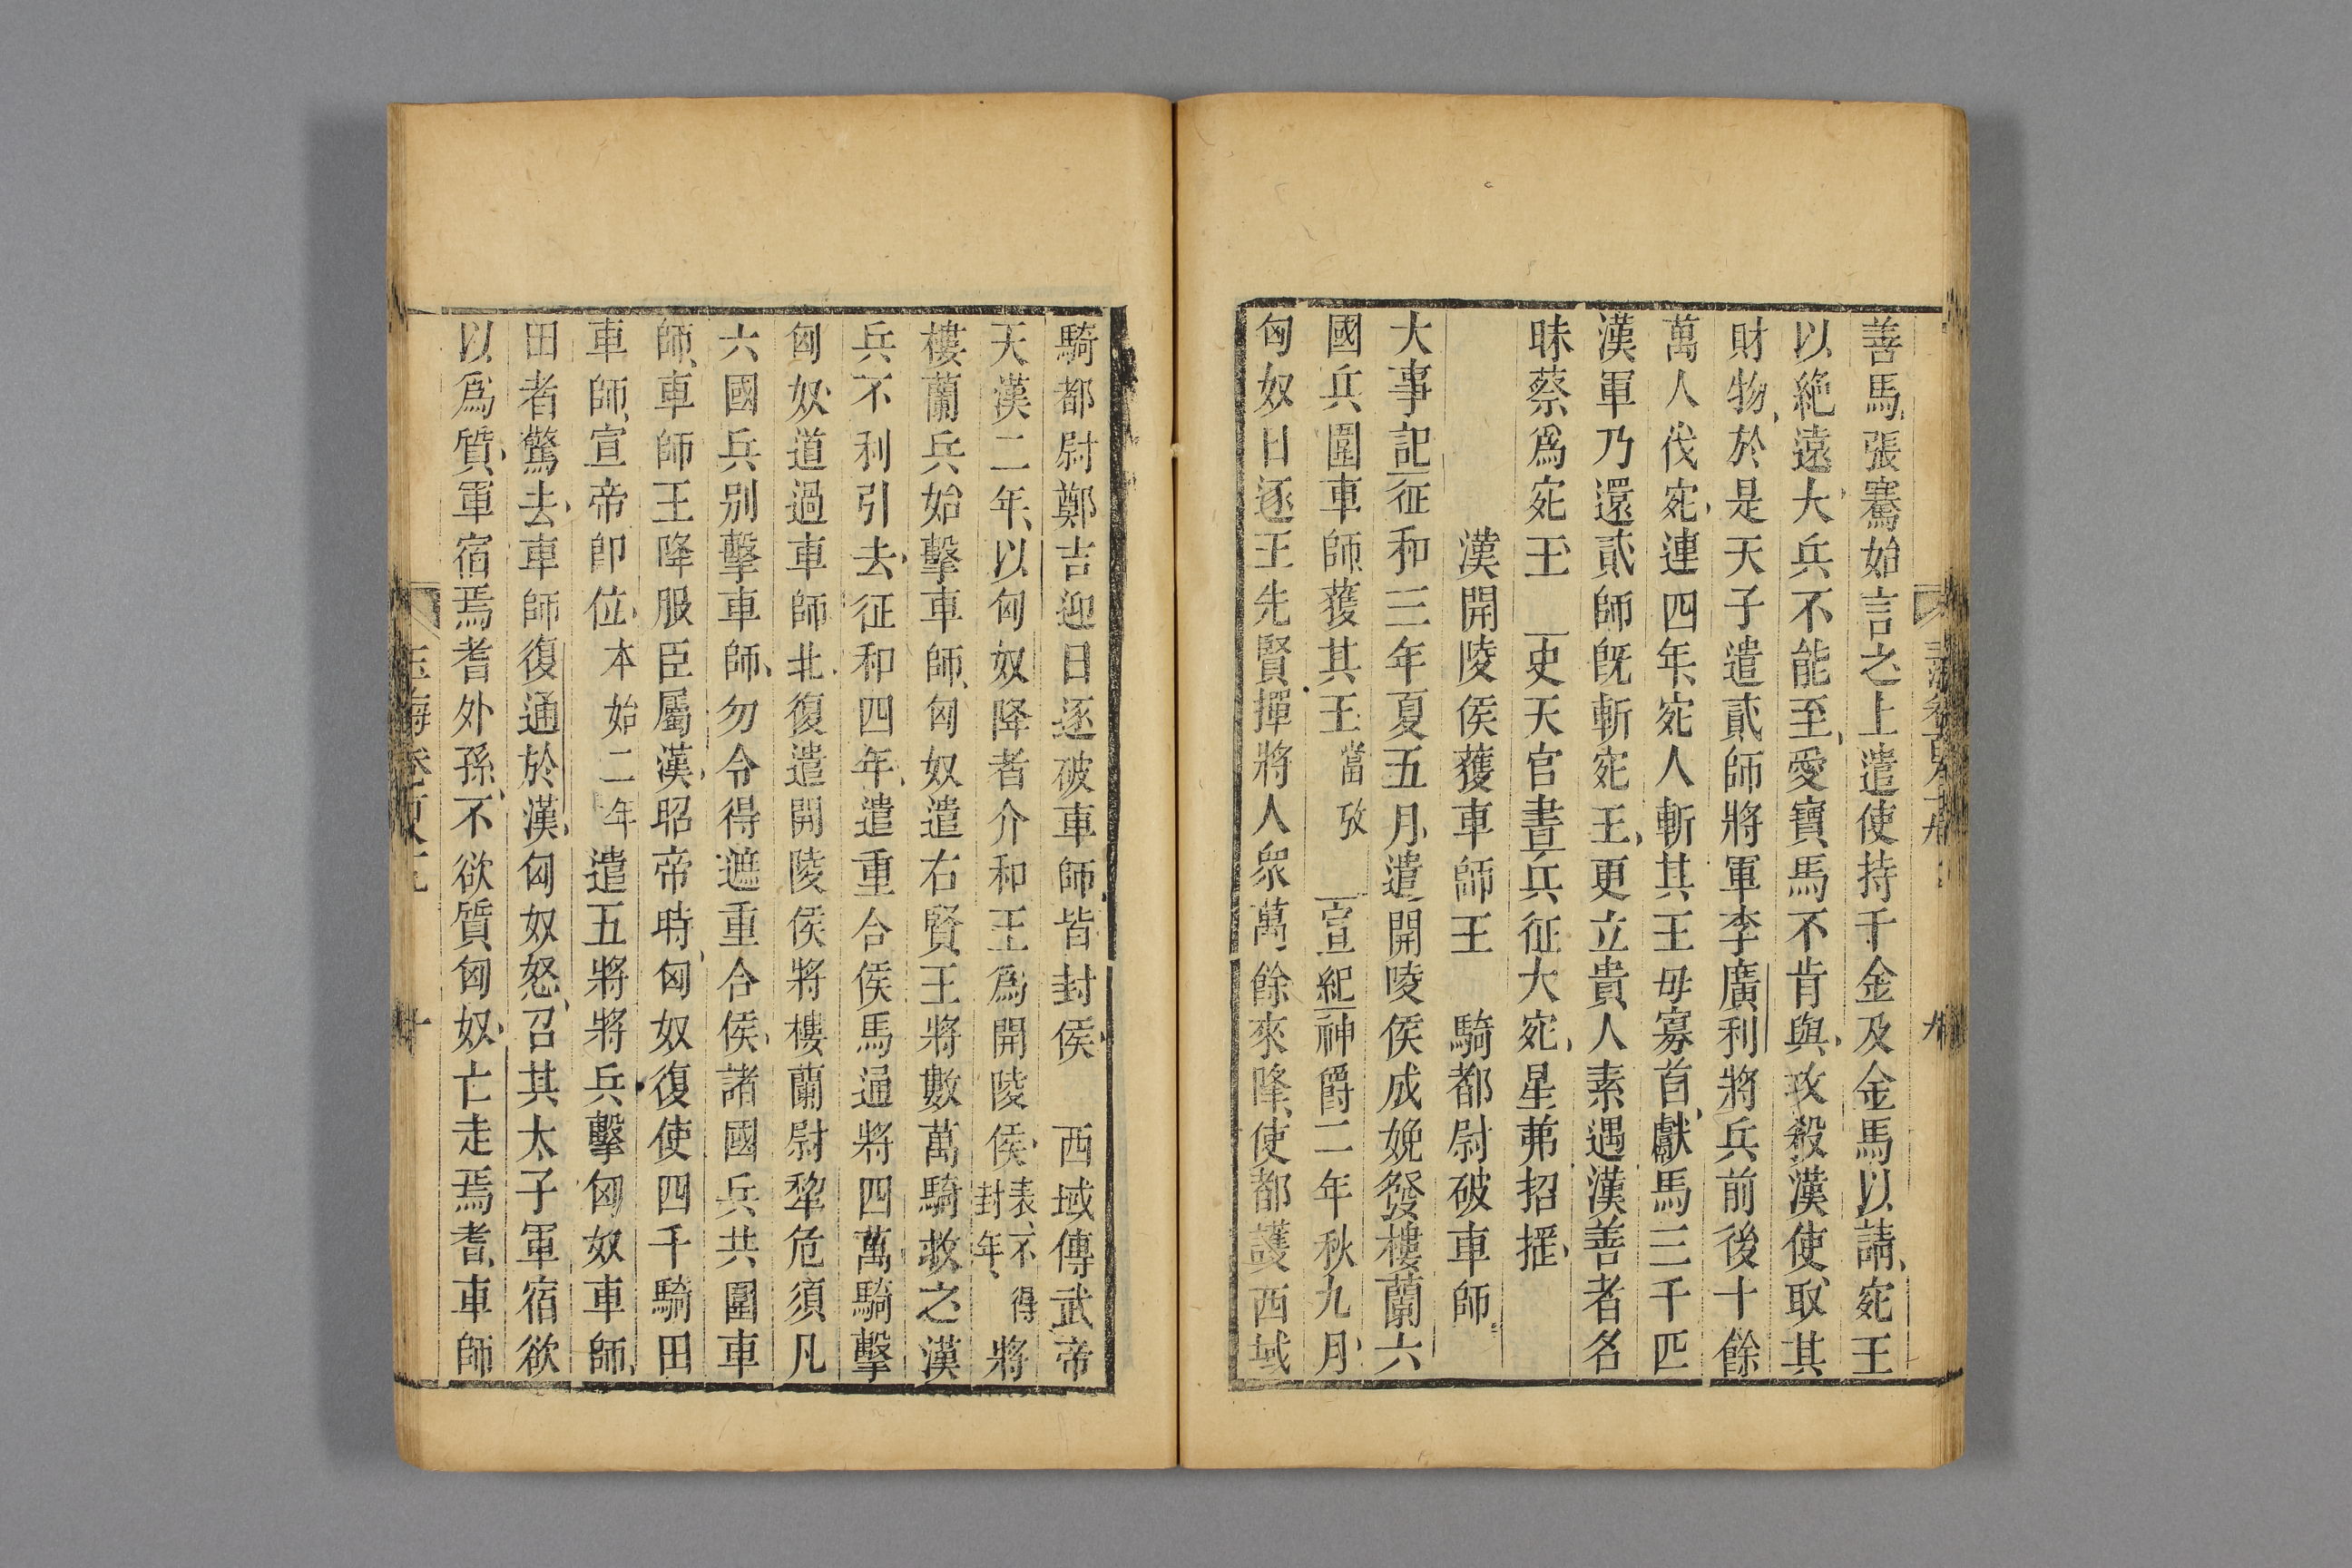 善馬張騫始言之上遣使持千金及金馬以請宛王
以絶遠大兵不能至愛寶馬不肯與攻殺漢使取其
財物於是天子遣貳師將軍李廣利將兵前後十餘
萬人伐宛連四年宛人斬其王毋寡首獻馬三千匹
漢軍乃還貳師既斬宛王更立貴人素遇漢善者名
昧蔡爲宛王 史天官書兵征大宛星茀招搖
漢開陵侯獲車師王 騎都尉破車師
大事記征和三年夏五月遣開陵侯成娩發樓蘭六
國兵圍車師獲其王當攷 宣紀神爵二年秋九月
匈奴日逐王先賢撣將人衆萬餘來降使都護西域
騎都尉鄭吉迎日逐破車師皆封侯 西域傳武帝
天漢二年以匈奴降者介和王爲開陵侯表不得封年將
樓蘭兵始擊車師匈奴遣右賢王將數萬騎救之漢
兵不利引去征和四年遣重合侯馬通將四萬騎擊
匈奴道過車師北復遣開陵侯將樓蘭尉犂危須凡
六國兵別擊車師勿令得遮重合侯諸國兵共圍車
師車師王降服臣屬漢昭帝時匈奴復使四千騎田
車師宣帝卽位本始二年遣五將將兵擊匈奴車師
田者驚去車師復通於漢匈奴怒召其太子軍宿欲
以爲質軍宿焉耆外孫不欲質匈奴亡走焉耆車師
玉海卷